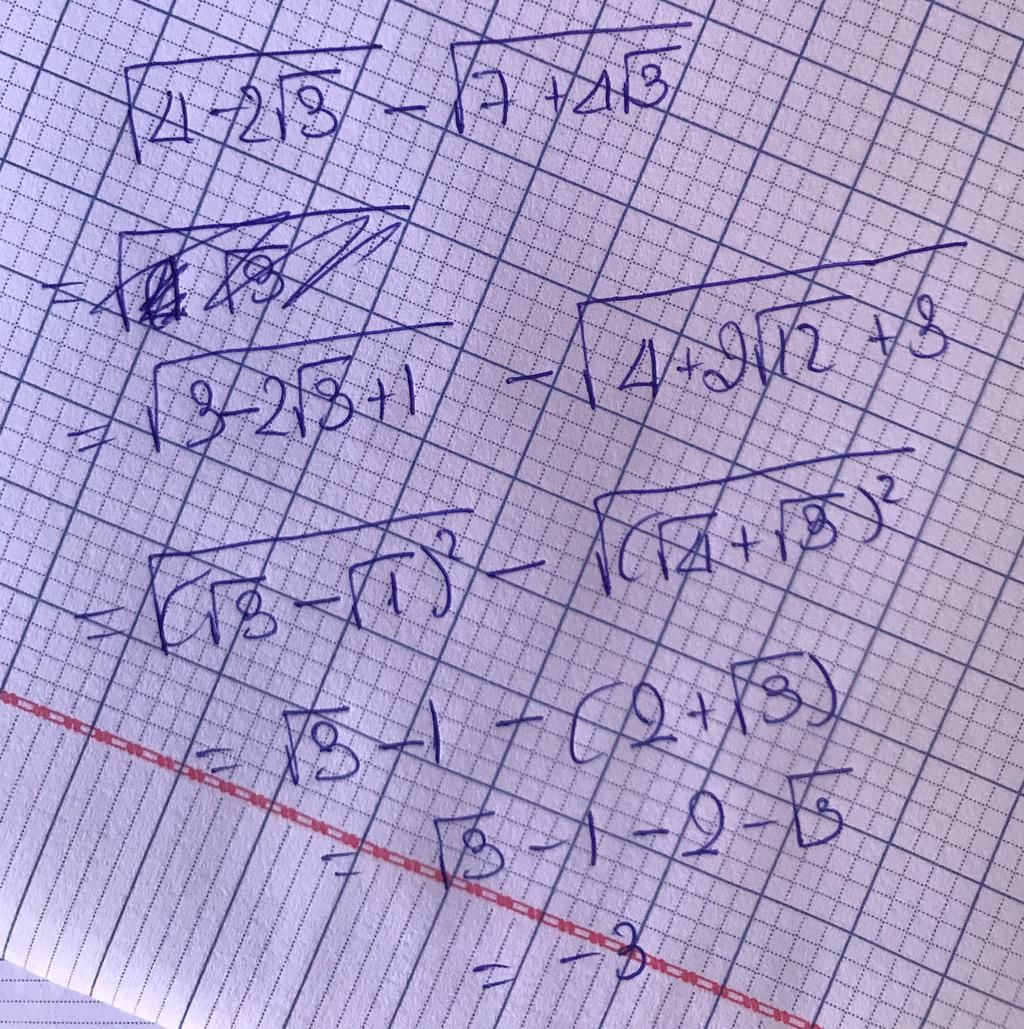 √(4-2√3) - √(7+4√3)
=
= √(3-2√3+1) - √(4+2√12+3)
= √((√3-√1)²) - √((√4+√3)²)
= √3-1-(2+√3)
= √3-1-2-√3
= -3